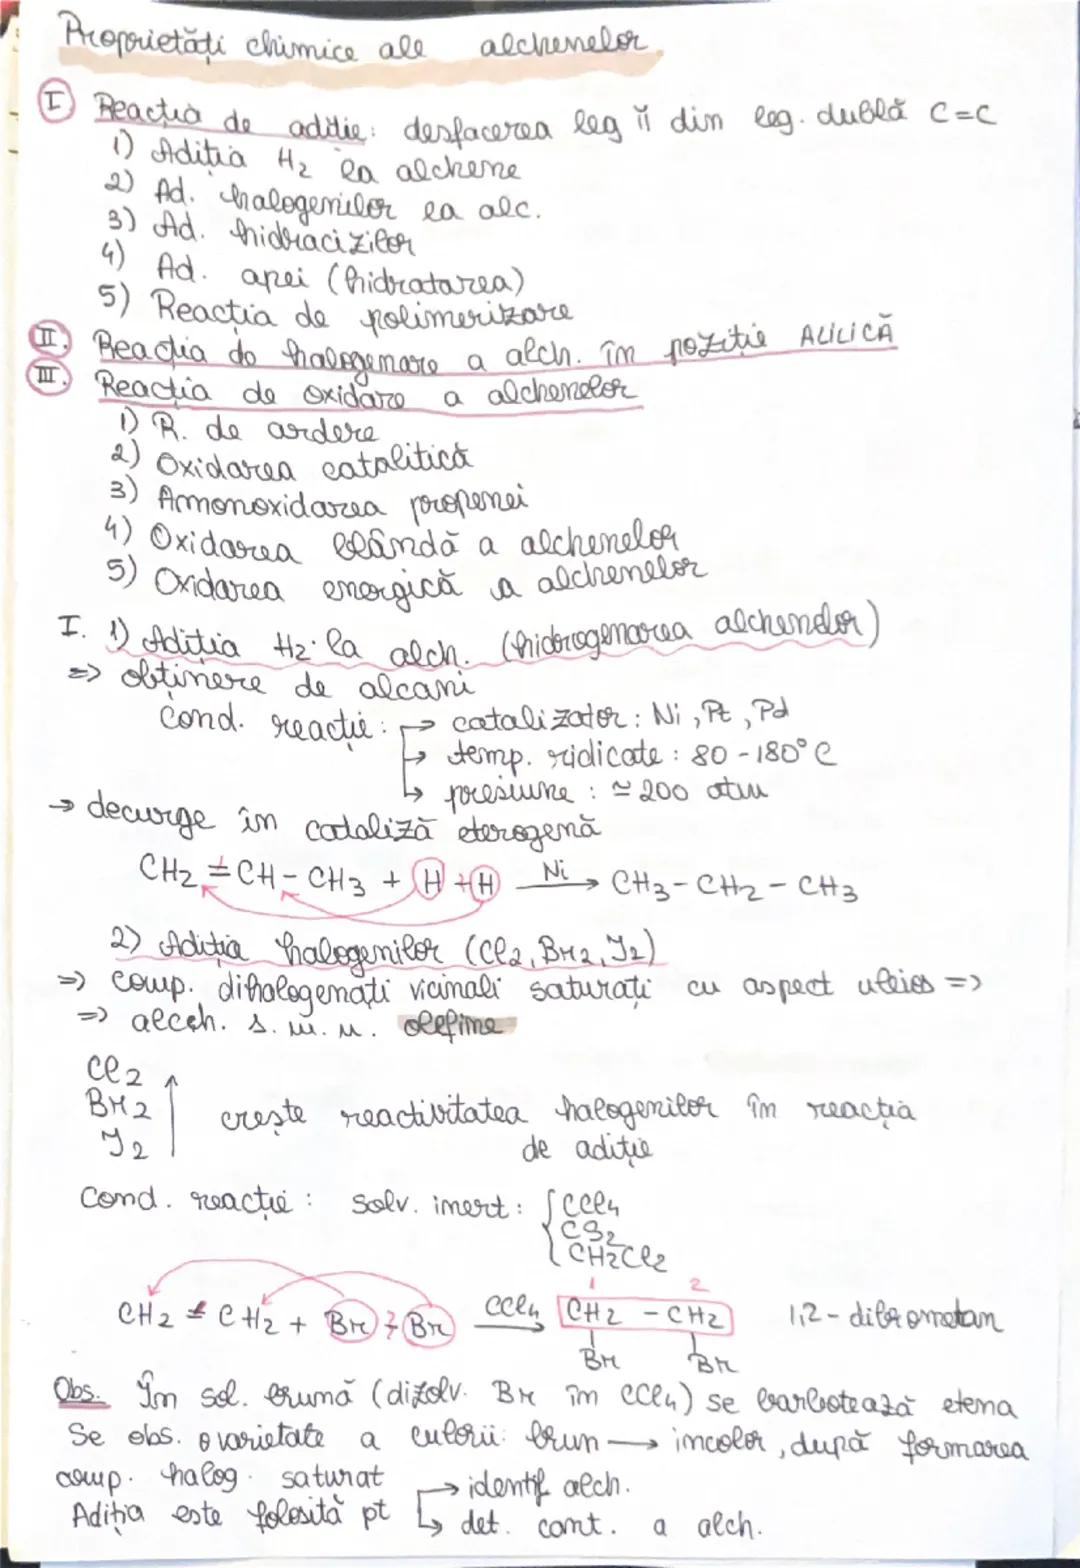 Proprietăți chimice ale alchenelor
I Reacția de aditie: desfacerea leg π din leg. dublă C=C
1) Adiția H2 la alchene
2) Ad. halogenilor la alc.
3) Ad. hidracizilor
4) Ad. apei (hidratarea)
5) Reacția de polimerizare
II. Reacția de halogenare a alch. în poziție ALILICĂ
III. Reactia de oxidare a alchenelor
1) R. de ardere
2) Oxidarea catalitică
3) Amonoxidarea propenei
4) Oxidarea blândă a alchenelor
5) Oxidarea energică a alchenelor
I. 1) Adiția H2 la alch. (hidrogenarea alchenelor)
=> obținere de alcani
Cond. reacție: → catalizator: Ni, Pt, Pd
↳ temp. ridicate: 80-180°C
↳ presiune: ≃ 200 atm
→ decurge în cataliză eterogenă
CH2 = CH - CH3 + H + H Ni → CH3 - CH2 - CH3
2) Aditia halogenilor (Cl2, Br2, I2)
=> comp. dihalogenați vicinali saturați cu aspect uleios =>
=> alceh. s. m. n. olefine
Cl2
Br2 ↑ crește reactivitatea halogenilor în reacția
I2 de adiție
Cond. reacție: solv. inert: { CCl4
CS2
CH2Cl2
1 2
CH2 = CH2 + Br + Br CCl4 → CH2 - CH2 1,2-dibrometan
Br Br
Obs. În sol. brună (dizolv. Br în CCl4) se barbotează etena
Se obs. o varietate a culorii: brun → incolor, după formarea
comp. halog. saturat
Adiția este folosită pt → identif alch.
↳ det. cant. a alch.